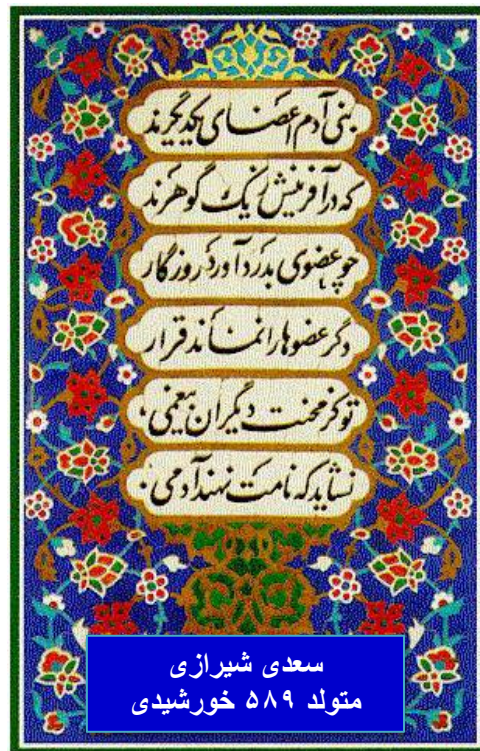 بنی آدم اعضای یکدیگرند
که در آفرینش ز یک گوهرند
چو عضوی بدرد آورد روزگار
دگر عضوها را نماند قرار
تو کز محنت دیگران بیغمی،
نشاید که نامت نهند آدمی.
سعدی شیرازی
متولد ۵۸۹ خورشیدی